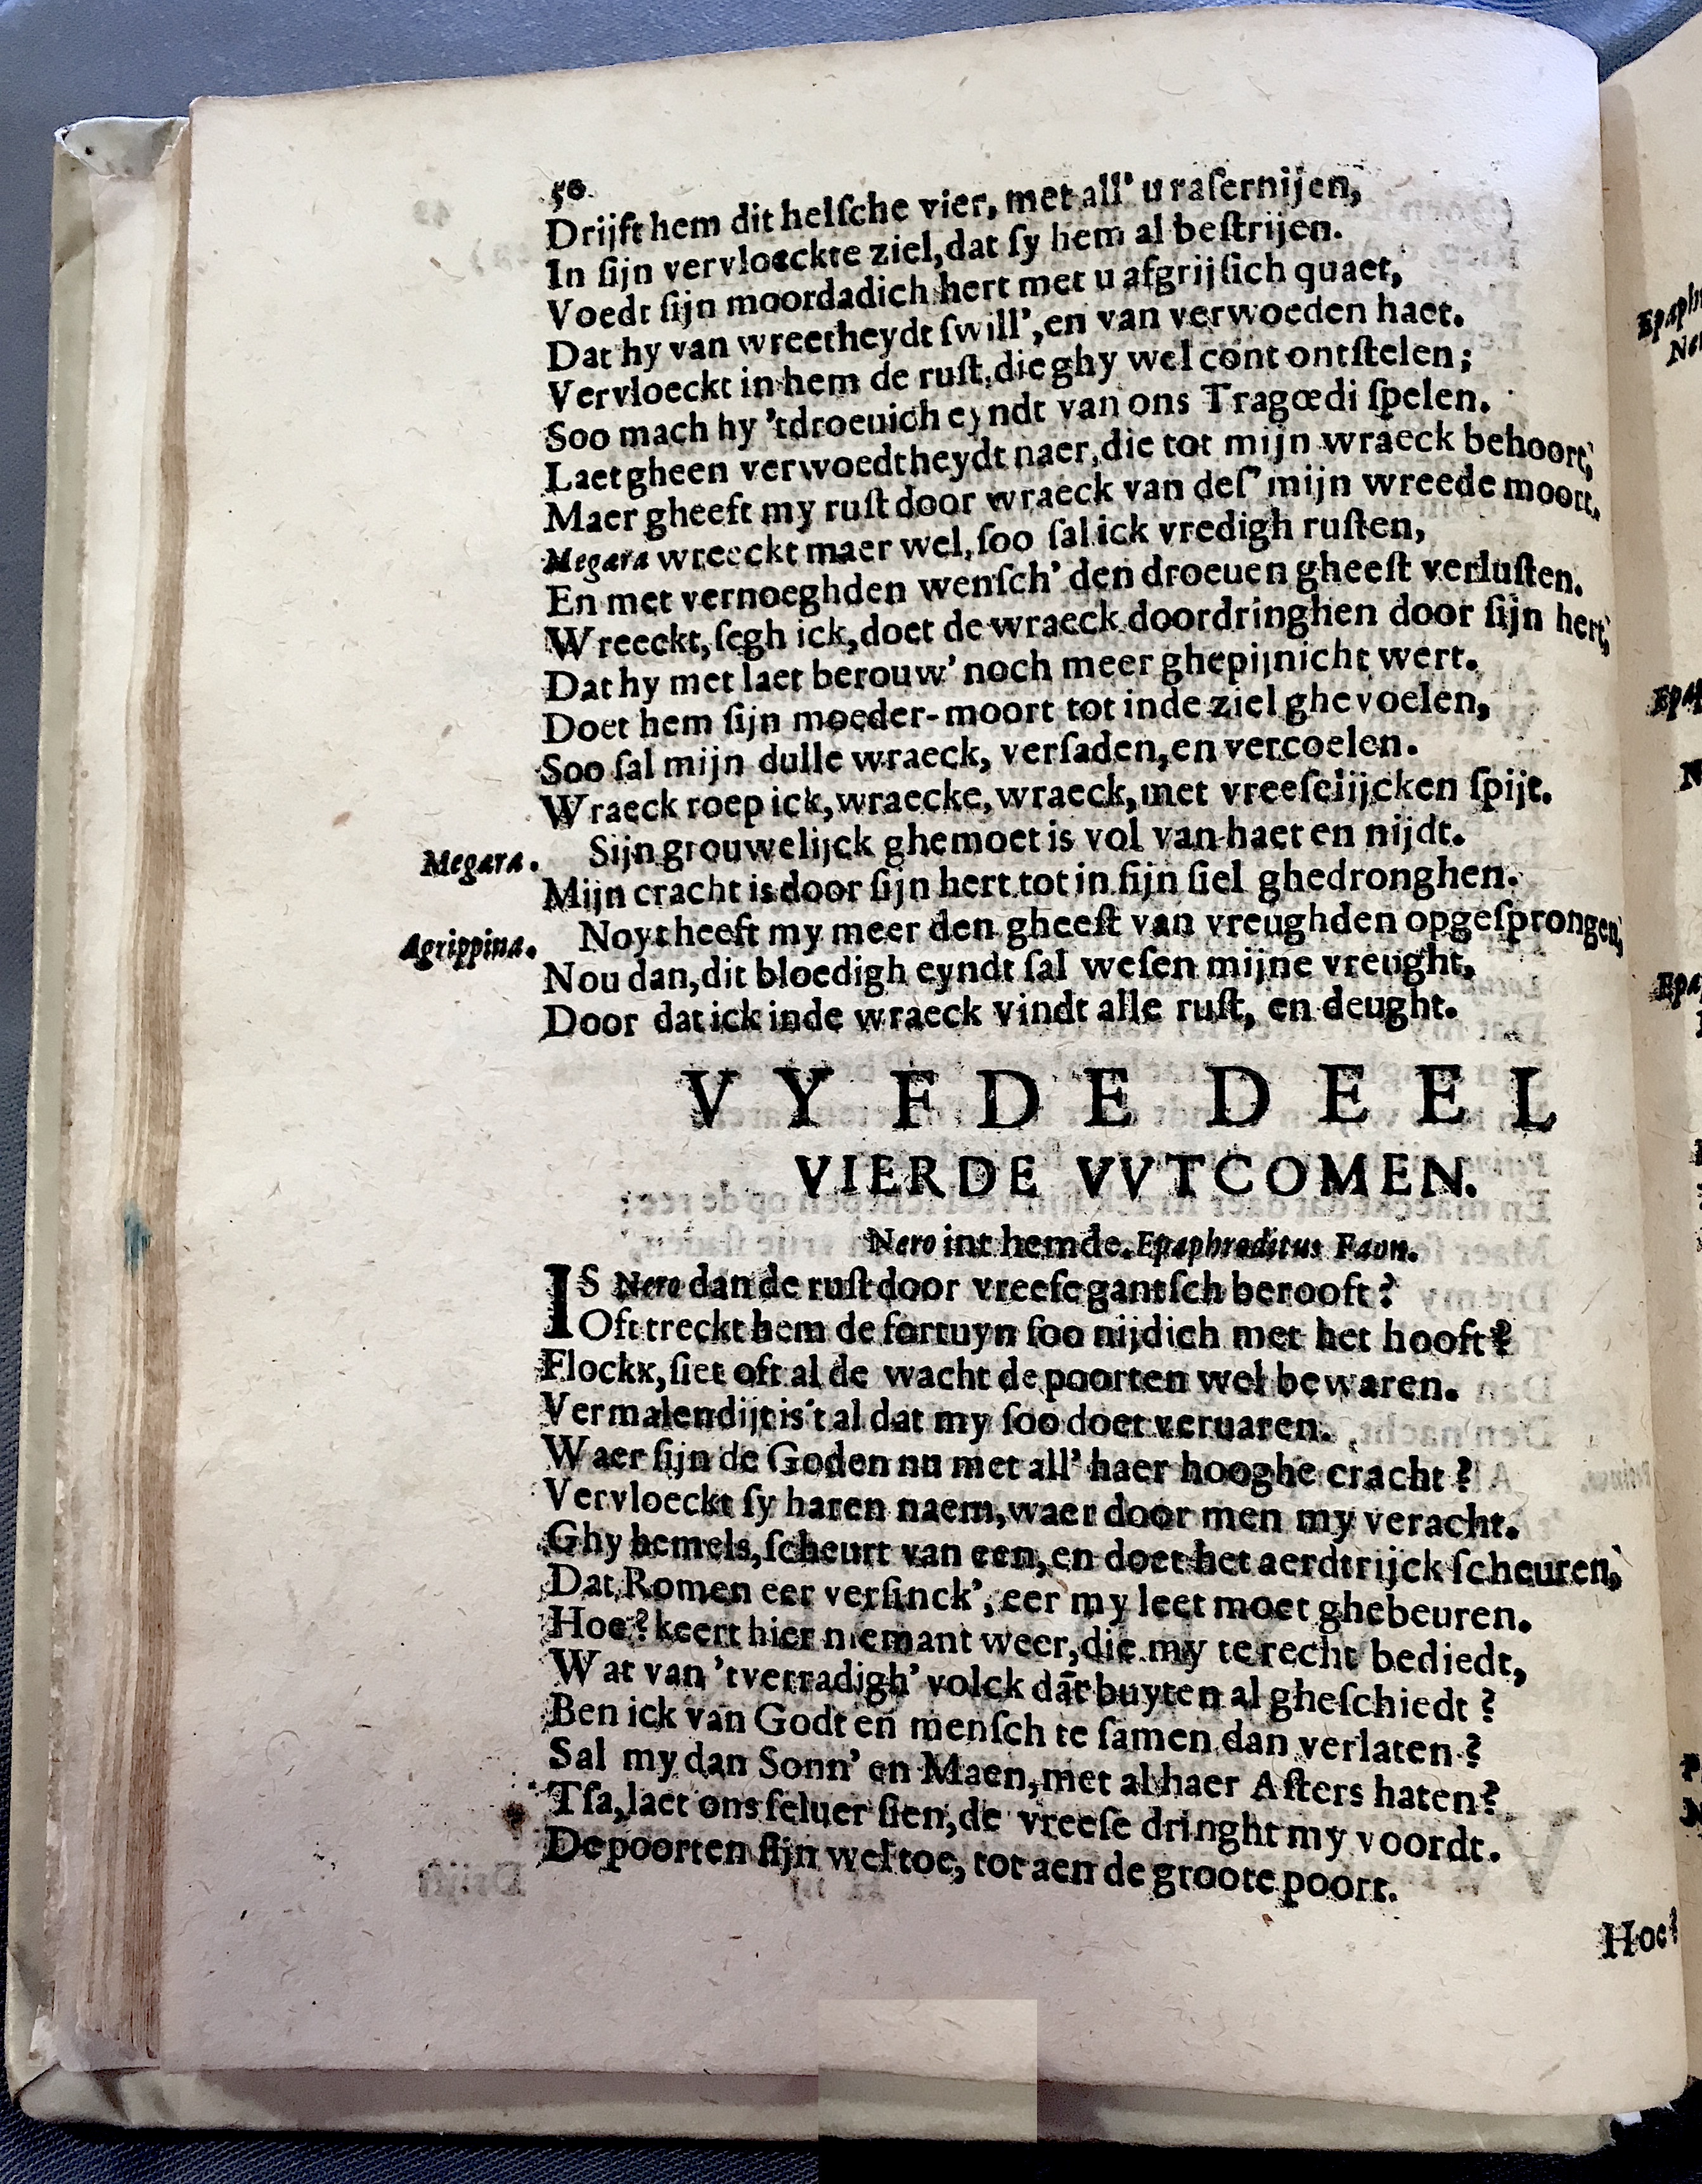 50
Drijft hem dit helſche vier, met all' u raſernijen,
In ſijn vervloeckte ziel, dat ſy hem al beſtrijen.
Voedt ſijn moordadich hert met u afgrijſich quaet,
Dat hy van wreetheydt ſwill', en van verwoeden haet.
Vervloeckt in hem de ruſt, die ghy wel cont ontſtelen;
Soo mach hy 'tdroeuich eyndt van ons Tragœdi ſpelen.
Laet gheen verwoedtheydt naer, die tot mijn wraeck behoort,
Maer gheeft my ruſt door wraeck van deſ' mijn wreede moort.
Megara wreeckt maer wel, ſoo ſal ick vredigh ruſten,
En met vernoeghden wenſch' den droeuen gheeſt verluſten.
Wreeckt, ſegh ick, doet de wraeck doordringhen door ſijn hert,
Dat hy met laet berouw' noch meer ghepijnicht wert.
Doet hem ſijn moeder-moort tot inde ziel ghevoelen,
Soo ſal mijn dulle wraeck, verſaden, en vercoelen.
Wraeck roep ick, wraecke, wraeck, met vreeſelijcken ſpijt.
Megara. Sijn grouwelijck ghemoet is vol van haet en nijdt.
Mijn cracht is door ſijn hert tot in ſijn ſiel ghedronghen.
Agrippina. Noyt heeft my meer den gheeſt van vreughden opgeſprongen,
Nou dan, dit bloedigh eyndt ſal weſen mijne vreught,
Door dat ick inde wraeck vindt alle ruſt, en deught.
VYFDE DEEL
VIERDE VVTCOMEN.
Nero int hemde. Epaphroditus Faon.
IS Nero dan de ruſt door vreeſe gantſch berooft?
Oft treckt hem de fortuyn ſoo nijdich met het hooft?
Flockx, ſiet oft al de wacht de poorten wel bewaren.
Vermalendijt is't al dat my ſoo doet veruaren.
Waer ſijn de Goden nu met all' haer hooghe cracht?
Vervloeckt ſy haren naem, waer door men my veracht.
Ghy hemels, ſcheurt van een, en doet het aerdtrijck ſcheuren,
Dat Romen eer verſinck', eer my leet moet ghebeuren.
Hoe? keert hier niemant weer, die my te recht bediedt,
Wat van 'tverradigh' volck dār buyten al gheſchiedt?
Ben ick van Godt en menſch te ſamen dan verlaten?
Sal my dan Sonn' en Maen, met al haer Aſters haten?
Tſa, laet ons ſeluer ſien, de vreeſe dringht my voordt.
De poorten ſijn wel toe, tot aen de groote poort.
Hoe?